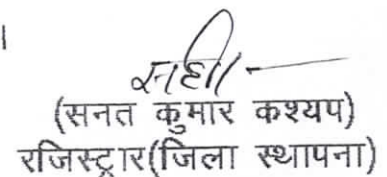 सही/-
(सनत कुमार कश्यप)
रजिस्ट्रार(जिला स्थापना)